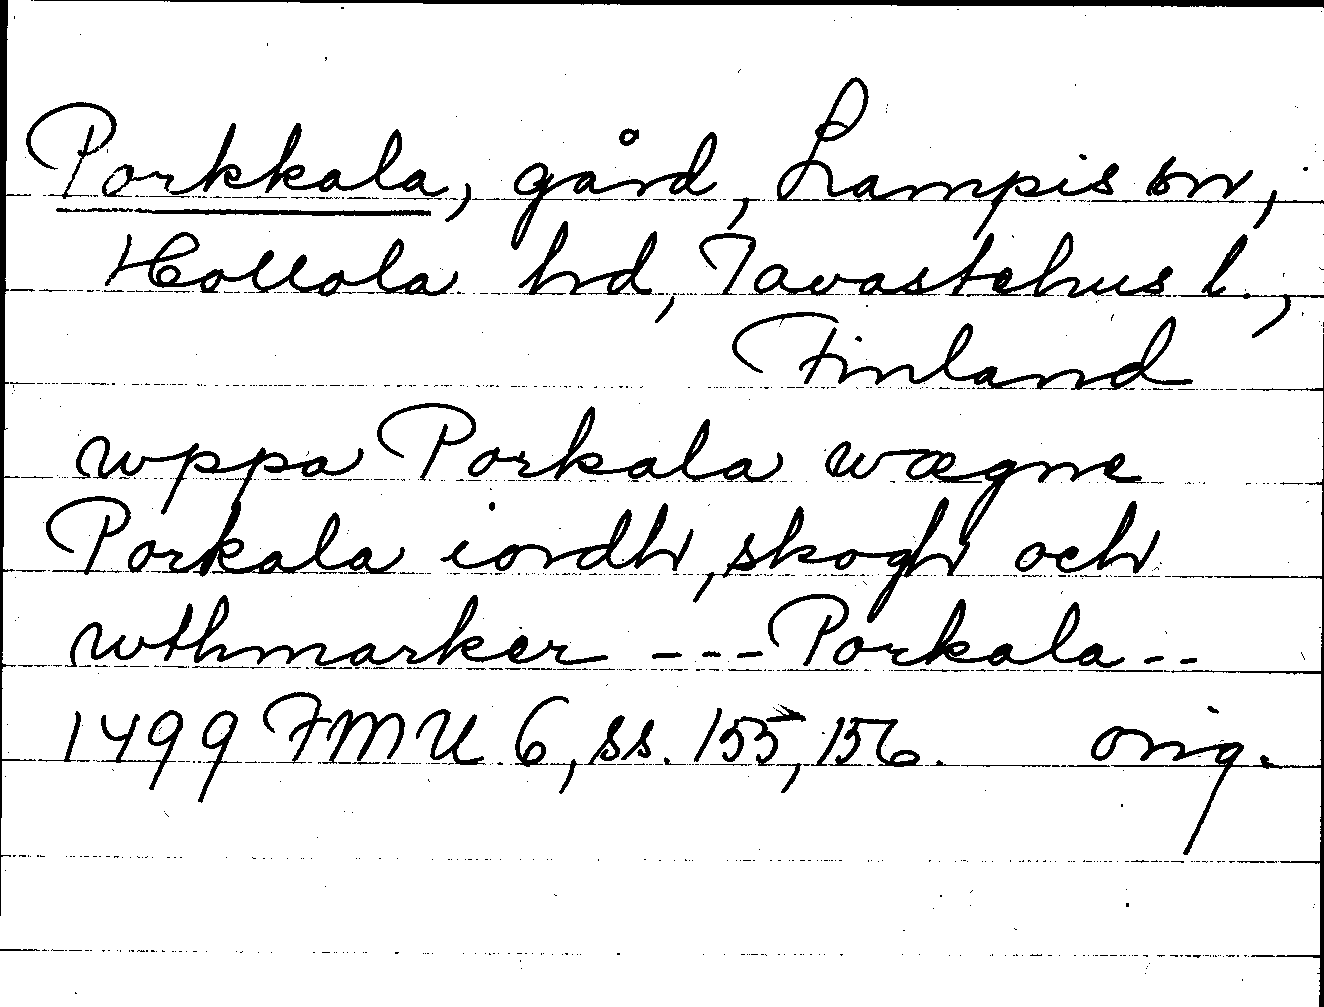 Porkkala, gård, Lampis sn,
Hollola hd, Tavastehus l.,
Finland
wppa Porkala wægne
Porkala iordh, skogh och
wthmarker --- Porkala --
1499 FMU 6, ss. 155, 156. orig.